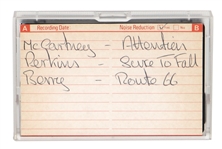 A Recording Date Noise Reduction B
McCartney - Attention
Perkins - Sure To Fall
Berry - Route 66